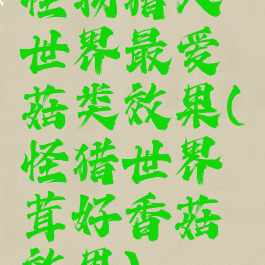 怪物猎人
世界最爱
菇类效果(
怪猎世界
茸好香菇
效果)